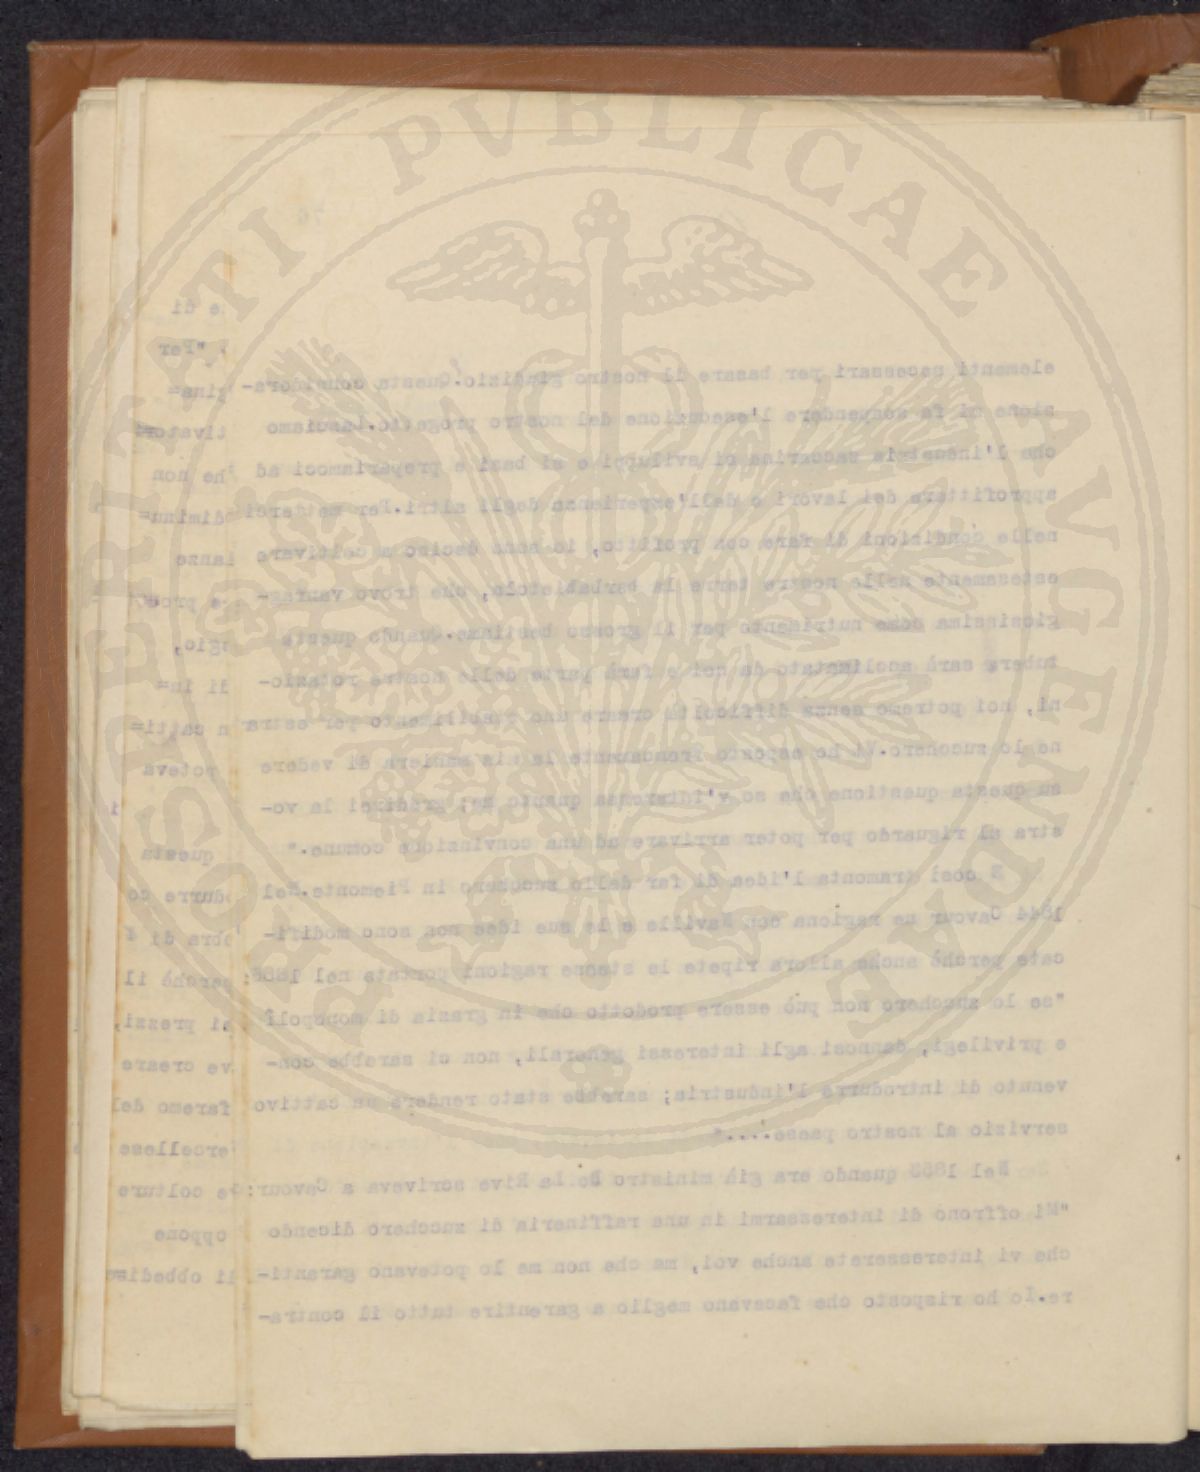 PROSPERITATI PVBLICAE AVGENDAE
elementi necessari per basare il nostro giudizio. Questa considera-
zione mi fa sospendere l'esecuzione del nostro progetto. Lasciamo
che l'industria saccarina si sviluppi e si basi e prepariamoci ad
approfittare dei lavori e dell'esperienza degli altri. Per metterci
nelle condizioni di fare con profitto, io sono deciso a coltivare
estesamente nelle nostre terre la barbabietola, che trovo vantag-
giosissima come nutrimento per il grosso bestiame. Quando questo
tubero sarà acclimatato da noi e farà parte delle nostre rotazio-
ni, noi potremo senza difficoltà creare uno stabilimento per estrar
ne lo zucchero. Vi ho esposto francamente la mia maniera di vedere
su questa questione che so v'interessa quanto me; gradirei la vo-
stra al riguardo per poter arrivare ad una convinzione comune."
E così tramonta l'idea di far dello zucchero in Piemonte. Nel
1844 Cavour ne ragiona con Naville e le sue idee non sono modifi-
cate perchè anche allora ripete le stesse ragioni portate nel 1836:
"se lo zucchero non può essere prodotto che in grazia di monopoli
e privilegi, dannosi agli interessi generali, non ci sarebbe con-
venuto di introdurre l'industria; sarebbe stato rendere un cattivo
servizio al nostro paese...."
Nel 1853 quando era già ministro De La Rive scriveva a Cavour:
"Mi offrono di interessarmi in una raffineria di zucchero dicendo
che vi interesserete anche voi, ma che non me lo potevano garanti-
re. Io ho risposto che facevano meglio a garentire tutto il contra-
e di
"Per
gina=
tivatori
he non
diminu=
ianze
e pro
gio,
di in=
n catti=
poteva
i
questa
durre co
bra di 4
perchè il
ai prezzi,
ve creare
faremo del
ercellese
e colture
oppone
li obbedisc